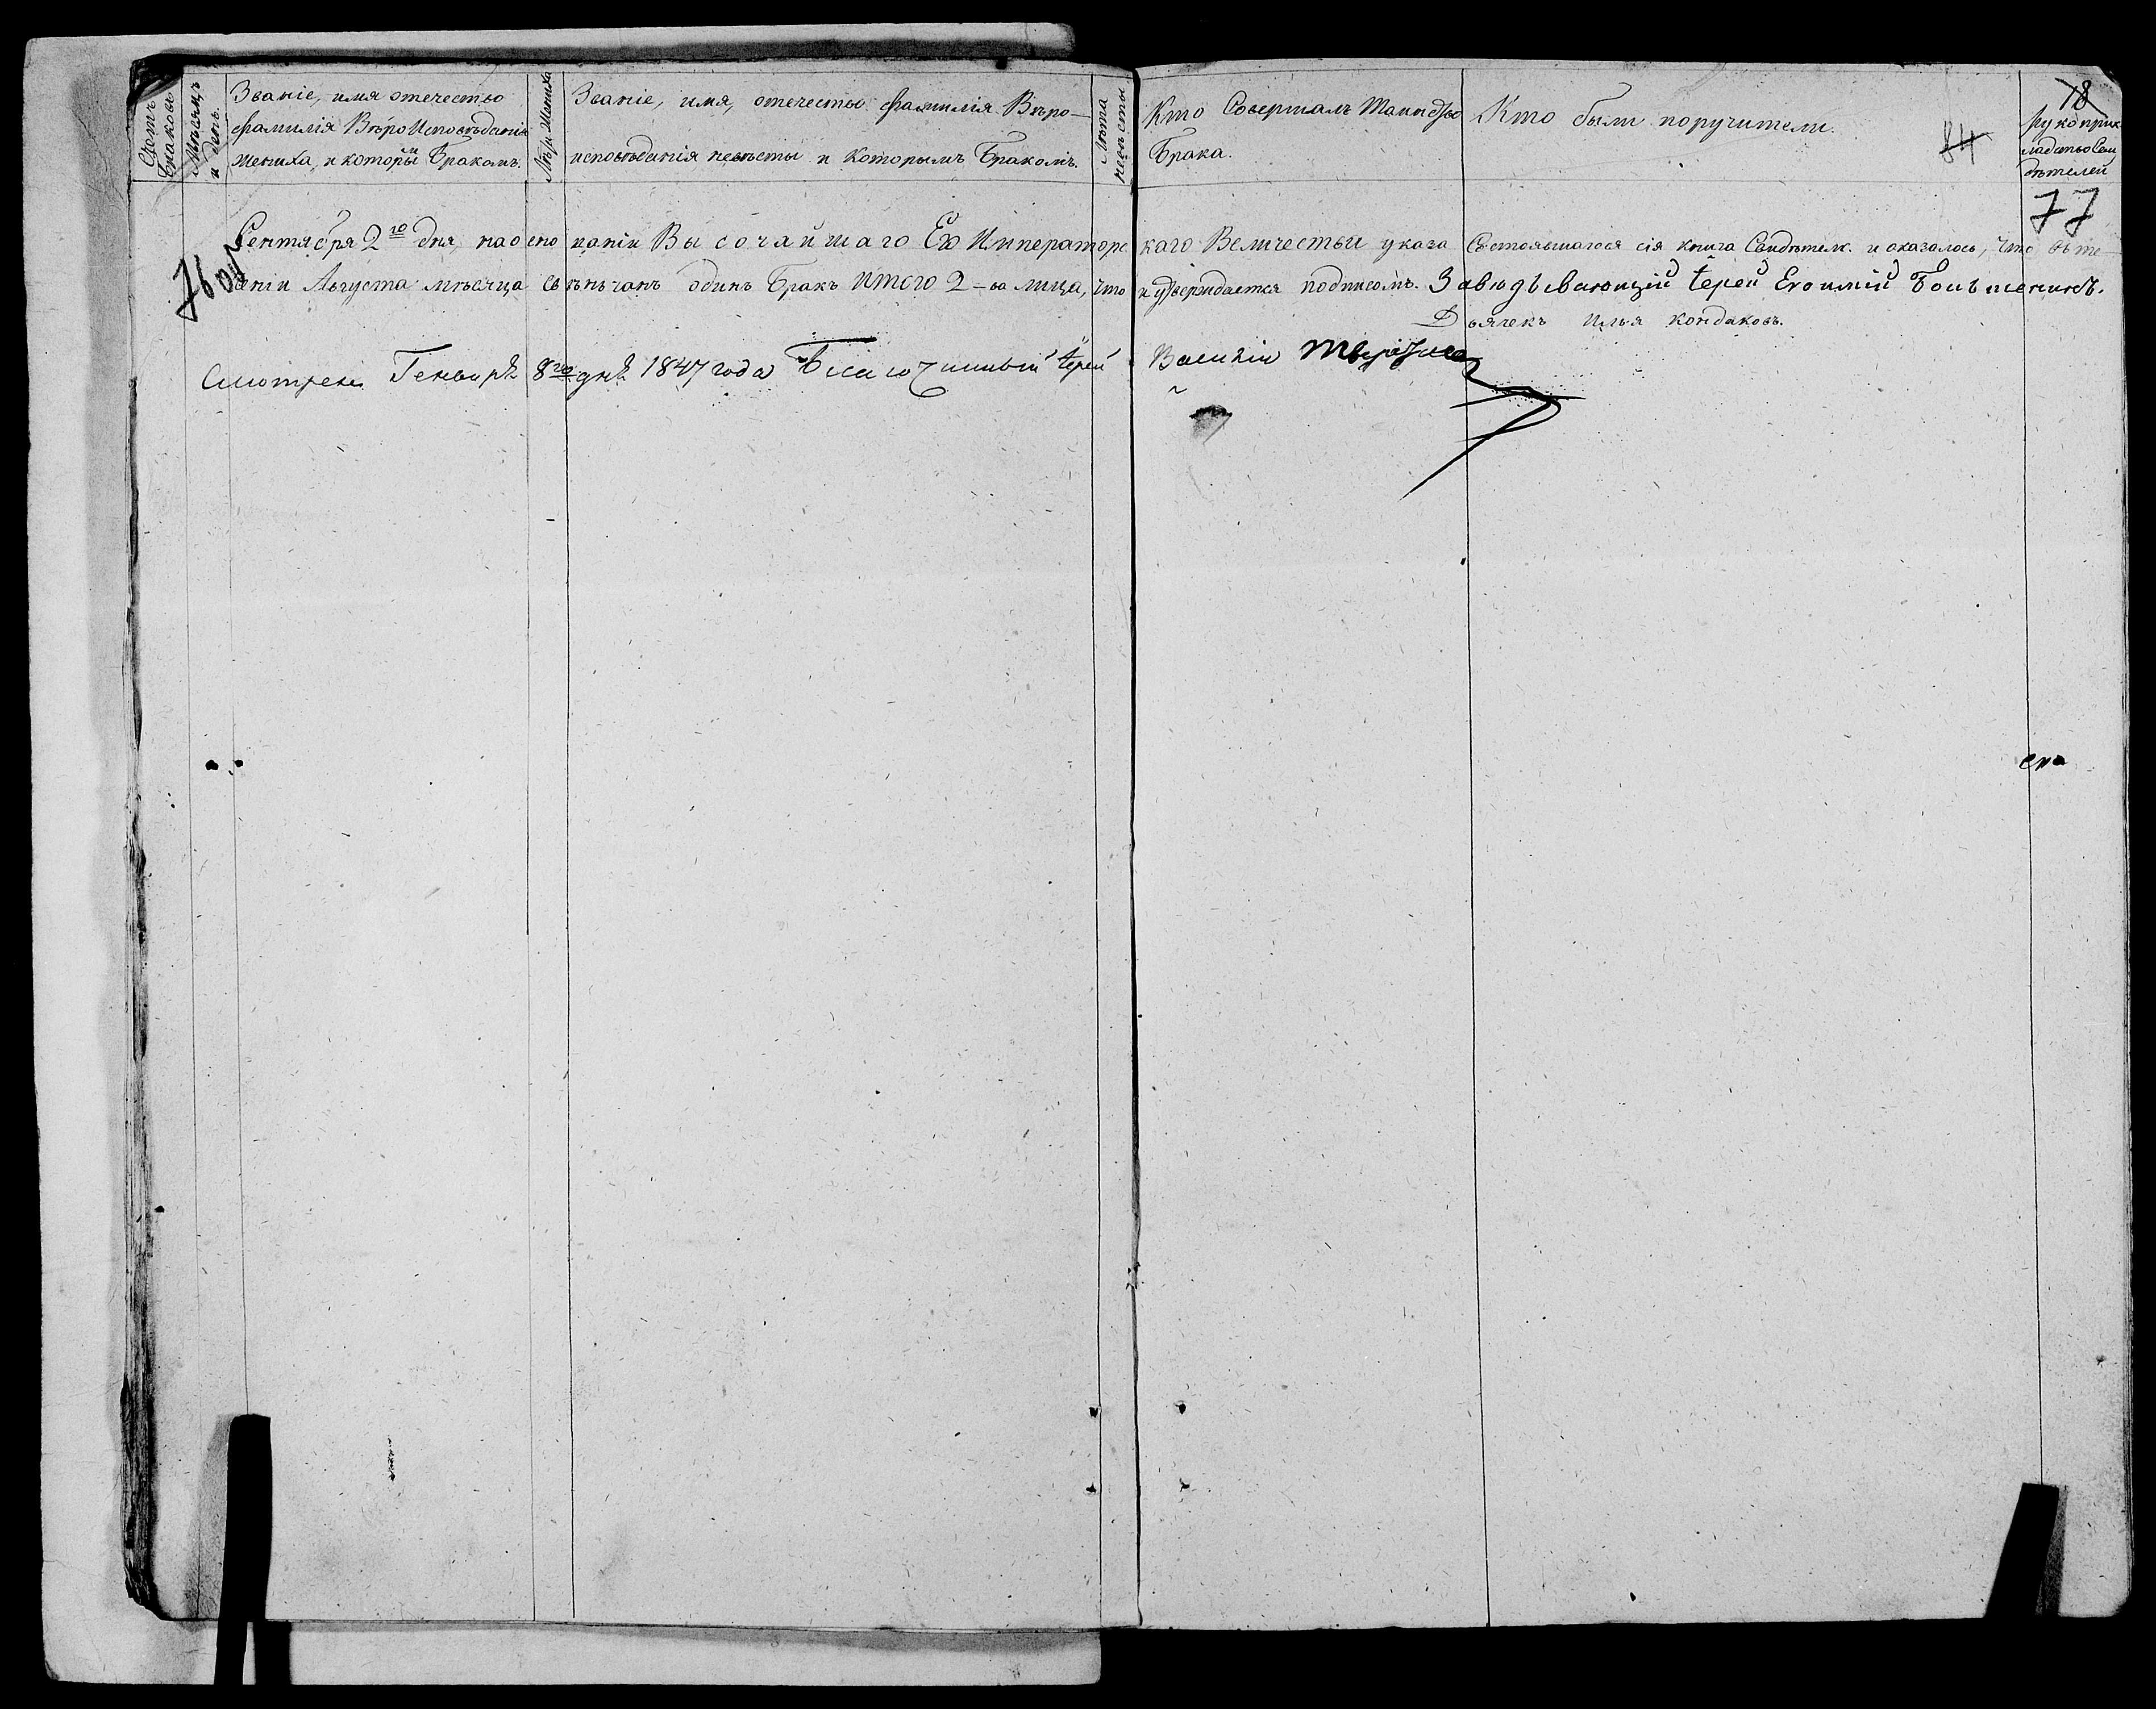 Счетъ Браковъ
Мѣсяцъ и день.
Званіе, имя отечество
фамилія ВѣроИсповѣданія
Жениха, и которымъ Бракомъ.
Лѣта Жениха
Званіе, имя, отечество фамилія Вѣро-
исповѣданія невѣсты и Которымъ Бракомъ.
Лѣта невѣсты
Кто Совершалъ Таинство
Брака.
Кто были поручители.
84
18
рукоприк
ладство Сви
дѣтелей
77
Сентября 2го дня, на осно ваніи Высочайшаго Его Император скаго Величества указа Состоявшагося сія книга Свидѣтел. и оказалось, что въ те
76 об
ченіи Августа мѣсяца свѣнчанъ одинъ Бракъ Итого 2-ва лица, что и удверждается подписомъ. Завѣдывающій Іерей
Дьячекъ Илья Кондаковъ.
Смотрелъ Генваря 8го дня 1847 года Благочинный Іерей Василій